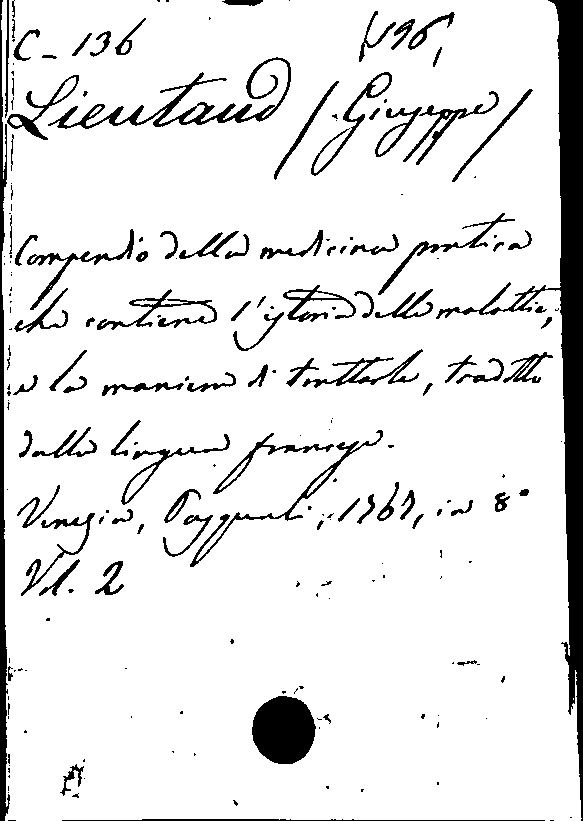 C-136
Lieutaud (Giuseppe)
Compendio della medicina pratica
che contiene l'istoria delle malattie,
e la maniera di trattarle, tradotto
dalla lingua francese.
Venezia, Pasquali, 1767, in 8°
Vol. 2